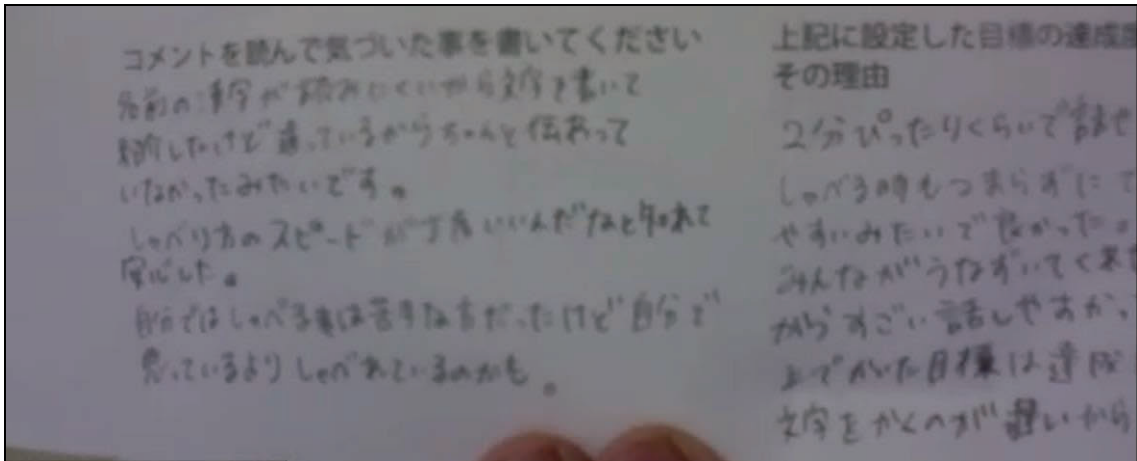 コメントを読んで気づいた事を書いてください
名前の漢字が読みにくいから文字を書いて
したけど違っているからちゃんと伝あって
いなかったみたいです。
しゃべり方のスピードが丁度いいんだなと知れて
安心した。
自分ではしゃべる事は苦手な方だったけど自分で
思っているよりしゃべれているのかも。
上記に設定した目標の達成度
その理由
2分ぴったりくらいで話せ
しゃべる時もつまらずにて
やすいみたいで良かった。
みんながうなずいてくれた
からすごい話しやすかっ
上でかいた目標は達成
文字をかくのが遅いから